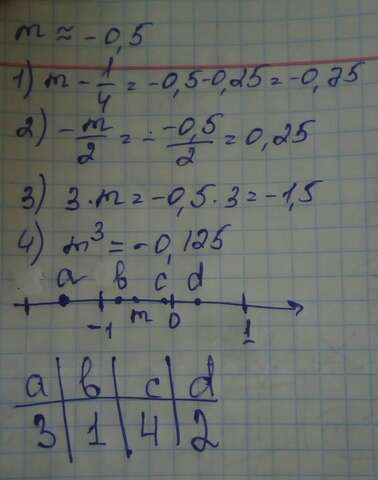 m ≈ -0,5
1) m - 1/4 = -0,5-0,25 = -0,75
2) -m/2 = - -0,5/2 = 0,25
3) 3·m = -0,5·3 = -1,5
4) m³ = -0,125
a b c d
-1 m 0 1
a b c d
3 1 4 2